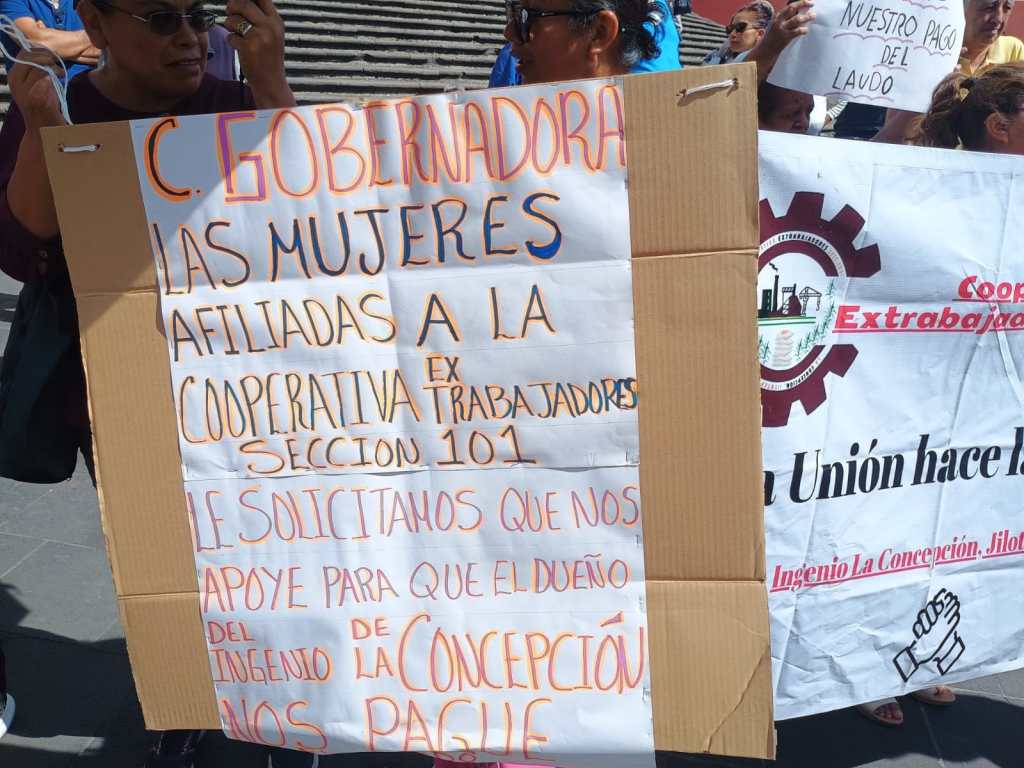 NUESTRO PAGO
DEL
LAUDO
C. GOBERNADORA
LAS MUJERES
AFILIADAS A LA
COOPERATIVA EX TRABAJADORES
SECCION 101
LE SOLICITAMOS QUE NOS
APOYE PARA QUE EL DUEÑO
DEL INGENIO DE LA CONCEPCIÓN
NOS PAGUE
EXTRABAJADORES
Coop
Extrabajad
Unión hace l
Ingenio La Concepción, Jilot